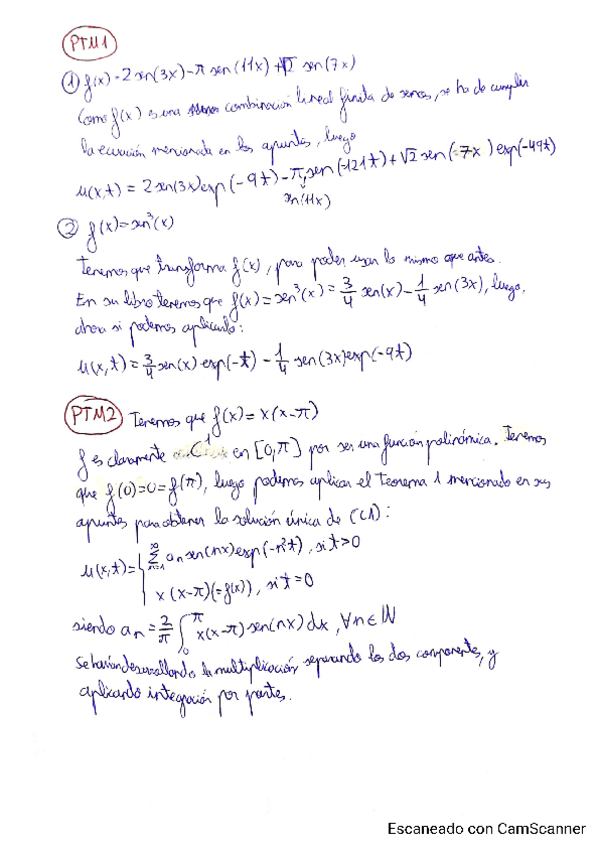 PTM1
① f(x) = 2 sen(3x) - π sen(11x) + √2 sen(7x)
Como f(x) es una combinación lineal finita de senos, se ha de cumplir
la ecuación mencionada en los apuntes, luego
u(x,t) = 2 sen(3x) exp(-9t) - π sen(-121t) + √2 sen(-7x) exp(-49t)
sen(11x)
② f(x) = sen³(x)
Tenemos que transforma f(x), para poder usar lo mismo que antes.
En su libro tenemos que f(x) = sen³(x) = 3/4 sen(x) - 1/4 sen(3x), luego,
ahora si podemos aplicarlo:
u(x,t) = 3/4 sen(x) exp(-t) - 1/4 sen(3x) exp(-9t)
PTM2 Tenemos que f(x) = x(x-π)
f es claramente C¹ en [0,π] por ser una función polinómica. Tenemos
que f(0)=0=f(π), luego podemos aplicar el Teorema 1 mencionado en sus
apuntes para obtener la solución única de (CA):
u(x,t) = { ∑_{n=1}^{∞} aₙ sen(nx) exp(-n²t), si t>0
x(x-π)(=f(x)), si t=0
siendo aₙ = 2/π ∫₀^π x(x-π) sen(nx) dx, ∀n∈ℕ
Se harían desarrollando la multiplicación, separando los dos componentes, y
aplicando integración por partes.
Escaneado con CamScanner